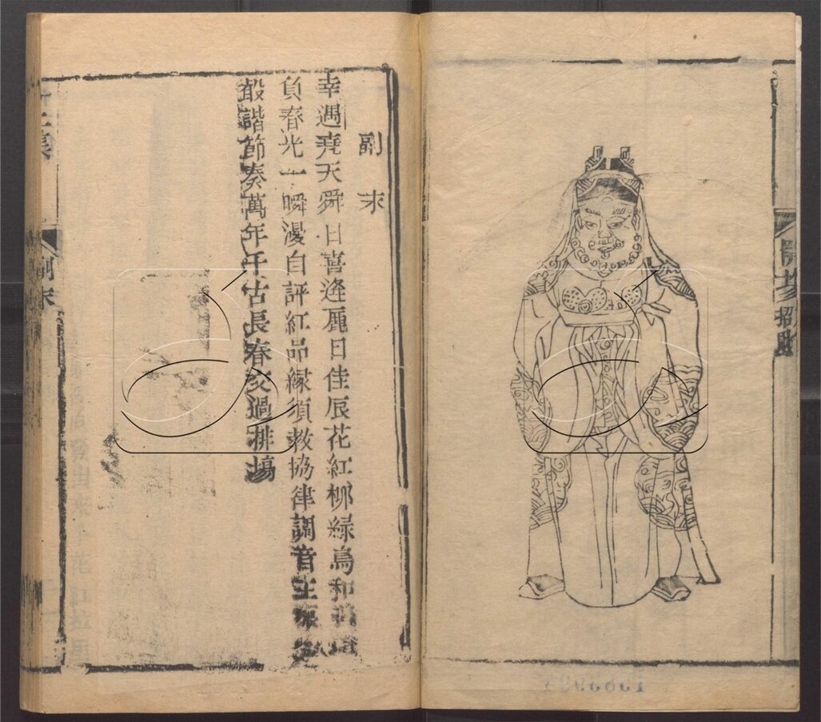 開場 招財
副末
幸遇堯天舜日喜逢麗日佳辰花紅柳綠鳥和
負春光一瞬漫自評紅品綠須教協律調音
諧節奏萬年千古長春交過排場
副末